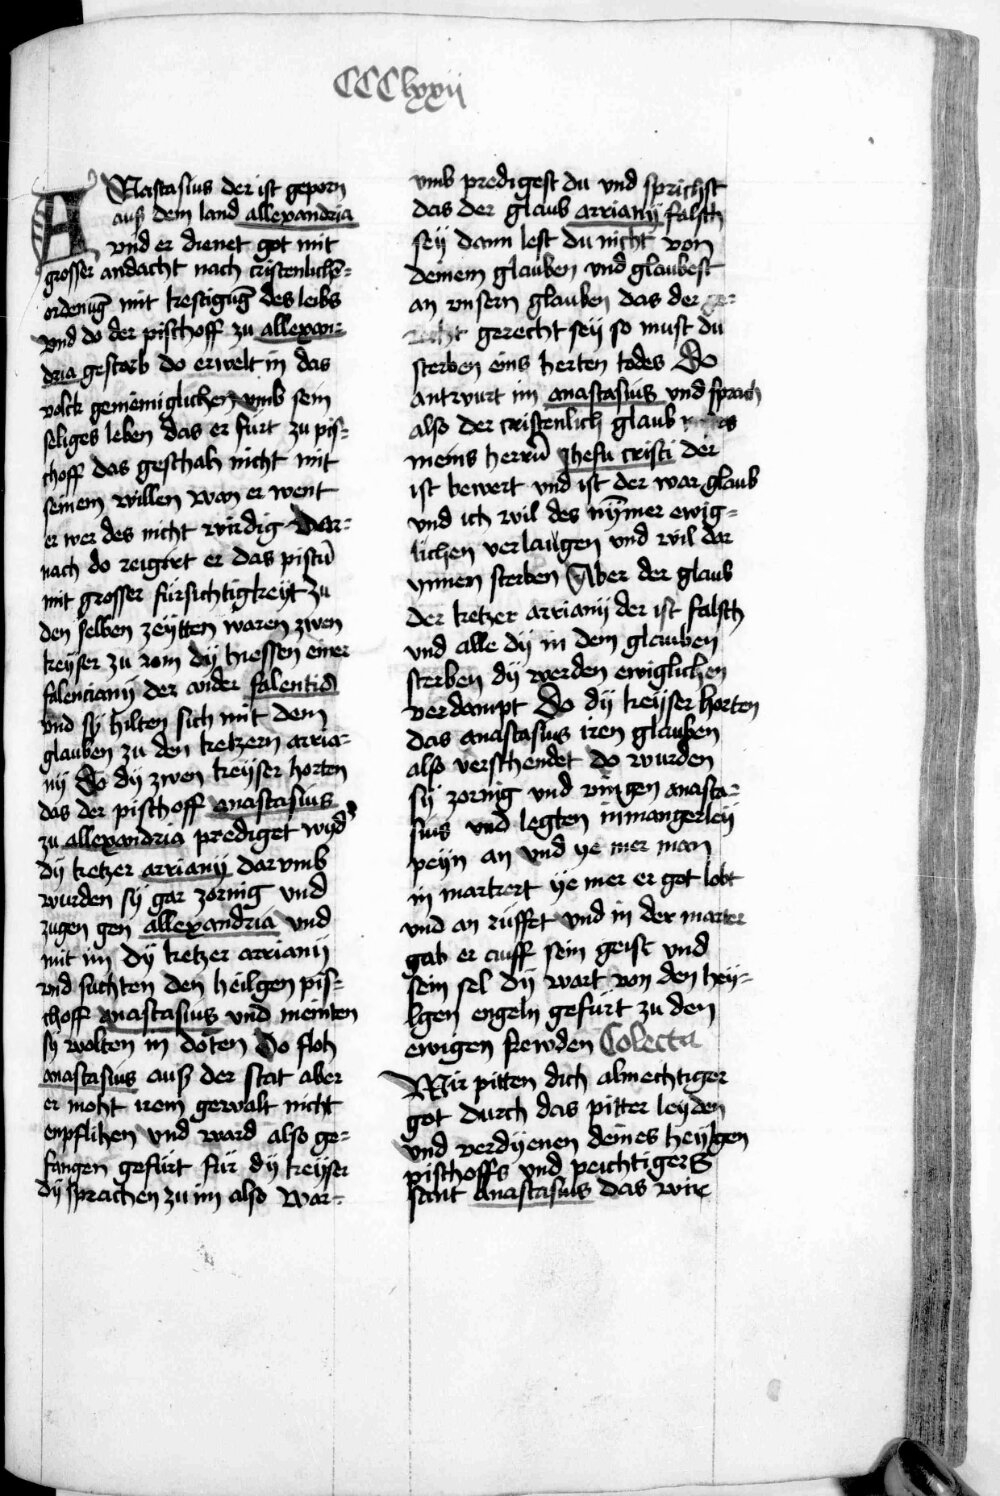 CCClxxii
ANastasius der ist geporn
auß dem land allexandria
vnd er dienet got mit
grosser andacht nach cristenlichē=
ordenūg mit kestigūg des leibs
vnd do der pischoff zu allexan=
dria gestorb do erwelt in das
volck gemeiniglichen vmb sein
seliges leben das er fürt zu pis=
choff das geschah nicht mit
seinem willen wan er went
er wer des nicht wirdig Dar=
nach do reigirt er das pistū
mit grosser fürsichtigkeyt Zu
den selben zeÿtten waren zwen
keÿser zu rom dÿ hiessen einer
falencianÿ der ander falentio
vnd sÿ hilten sich mit dem
glauben zu den ketzern arria=
nÿ Do dÿ zwen keÿser horten
das der pischoff anastasius
zu allexandria prediget wid'
dÿ ketzer arrianÿ dar vmb
wurden sÿ gar zornig vnd
zugen gen allexandria vnd
mit im dÿ ketzer arrianÿ
vnd suchten den heilgen pis=
choff anastasius vnd meinten
sÿ wolten in döten Do floh
anastasius auß der stat aber
er moht irem gewalt nicht
enpflihen vnd ward also ge=
fangen gefürt für dÿ keÿser
dÿ sprachen zu im also War=
vmb predigest du vnd sprichst
das der glaub arrianÿ falsch
seÿ dann lest du nicht von
deinem glauben vnd glaubest
an vnsern glauben das der
gerecht seÿ so must du
sterben eins herten todes Do
antwurt im anastasius vnd sprach
also der cristenlich glaub
meins herrn̄ Jhesu cristi der
ist bewert vnd ist der war glaub
vnd ich wil des nȳmer ewig=
lichen verlaugen vnd wil dar
ynnen sterben Aber der glaub
der ketzer arrianÿ der ist falsch
vnd alle dÿ in dem glauben
sterben dÿ werden ewiglichen
verdampt Do dÿ keÿser horten
das anastasius iren glauben
also verschendet do wurden
sÿ zornig vnd vingen anasta=
sius vnd legten im mangerleÿ
peÿn an vnd ÿe mer man
in martert ÿe mer er got lobt
vnd an rüffet vnd in der marter
gab er auff sein geist vnd
sein sel dÿ wart von den heÿ=
lgen engeln gefürt zu den
ewigen frewden Colecta
Wir pitten dich almechtiger
got durch das pitter leÿden
vnd verdÿenen deines heÿlgen
pischoffs vnd peichtigers
sant anastasius das wir